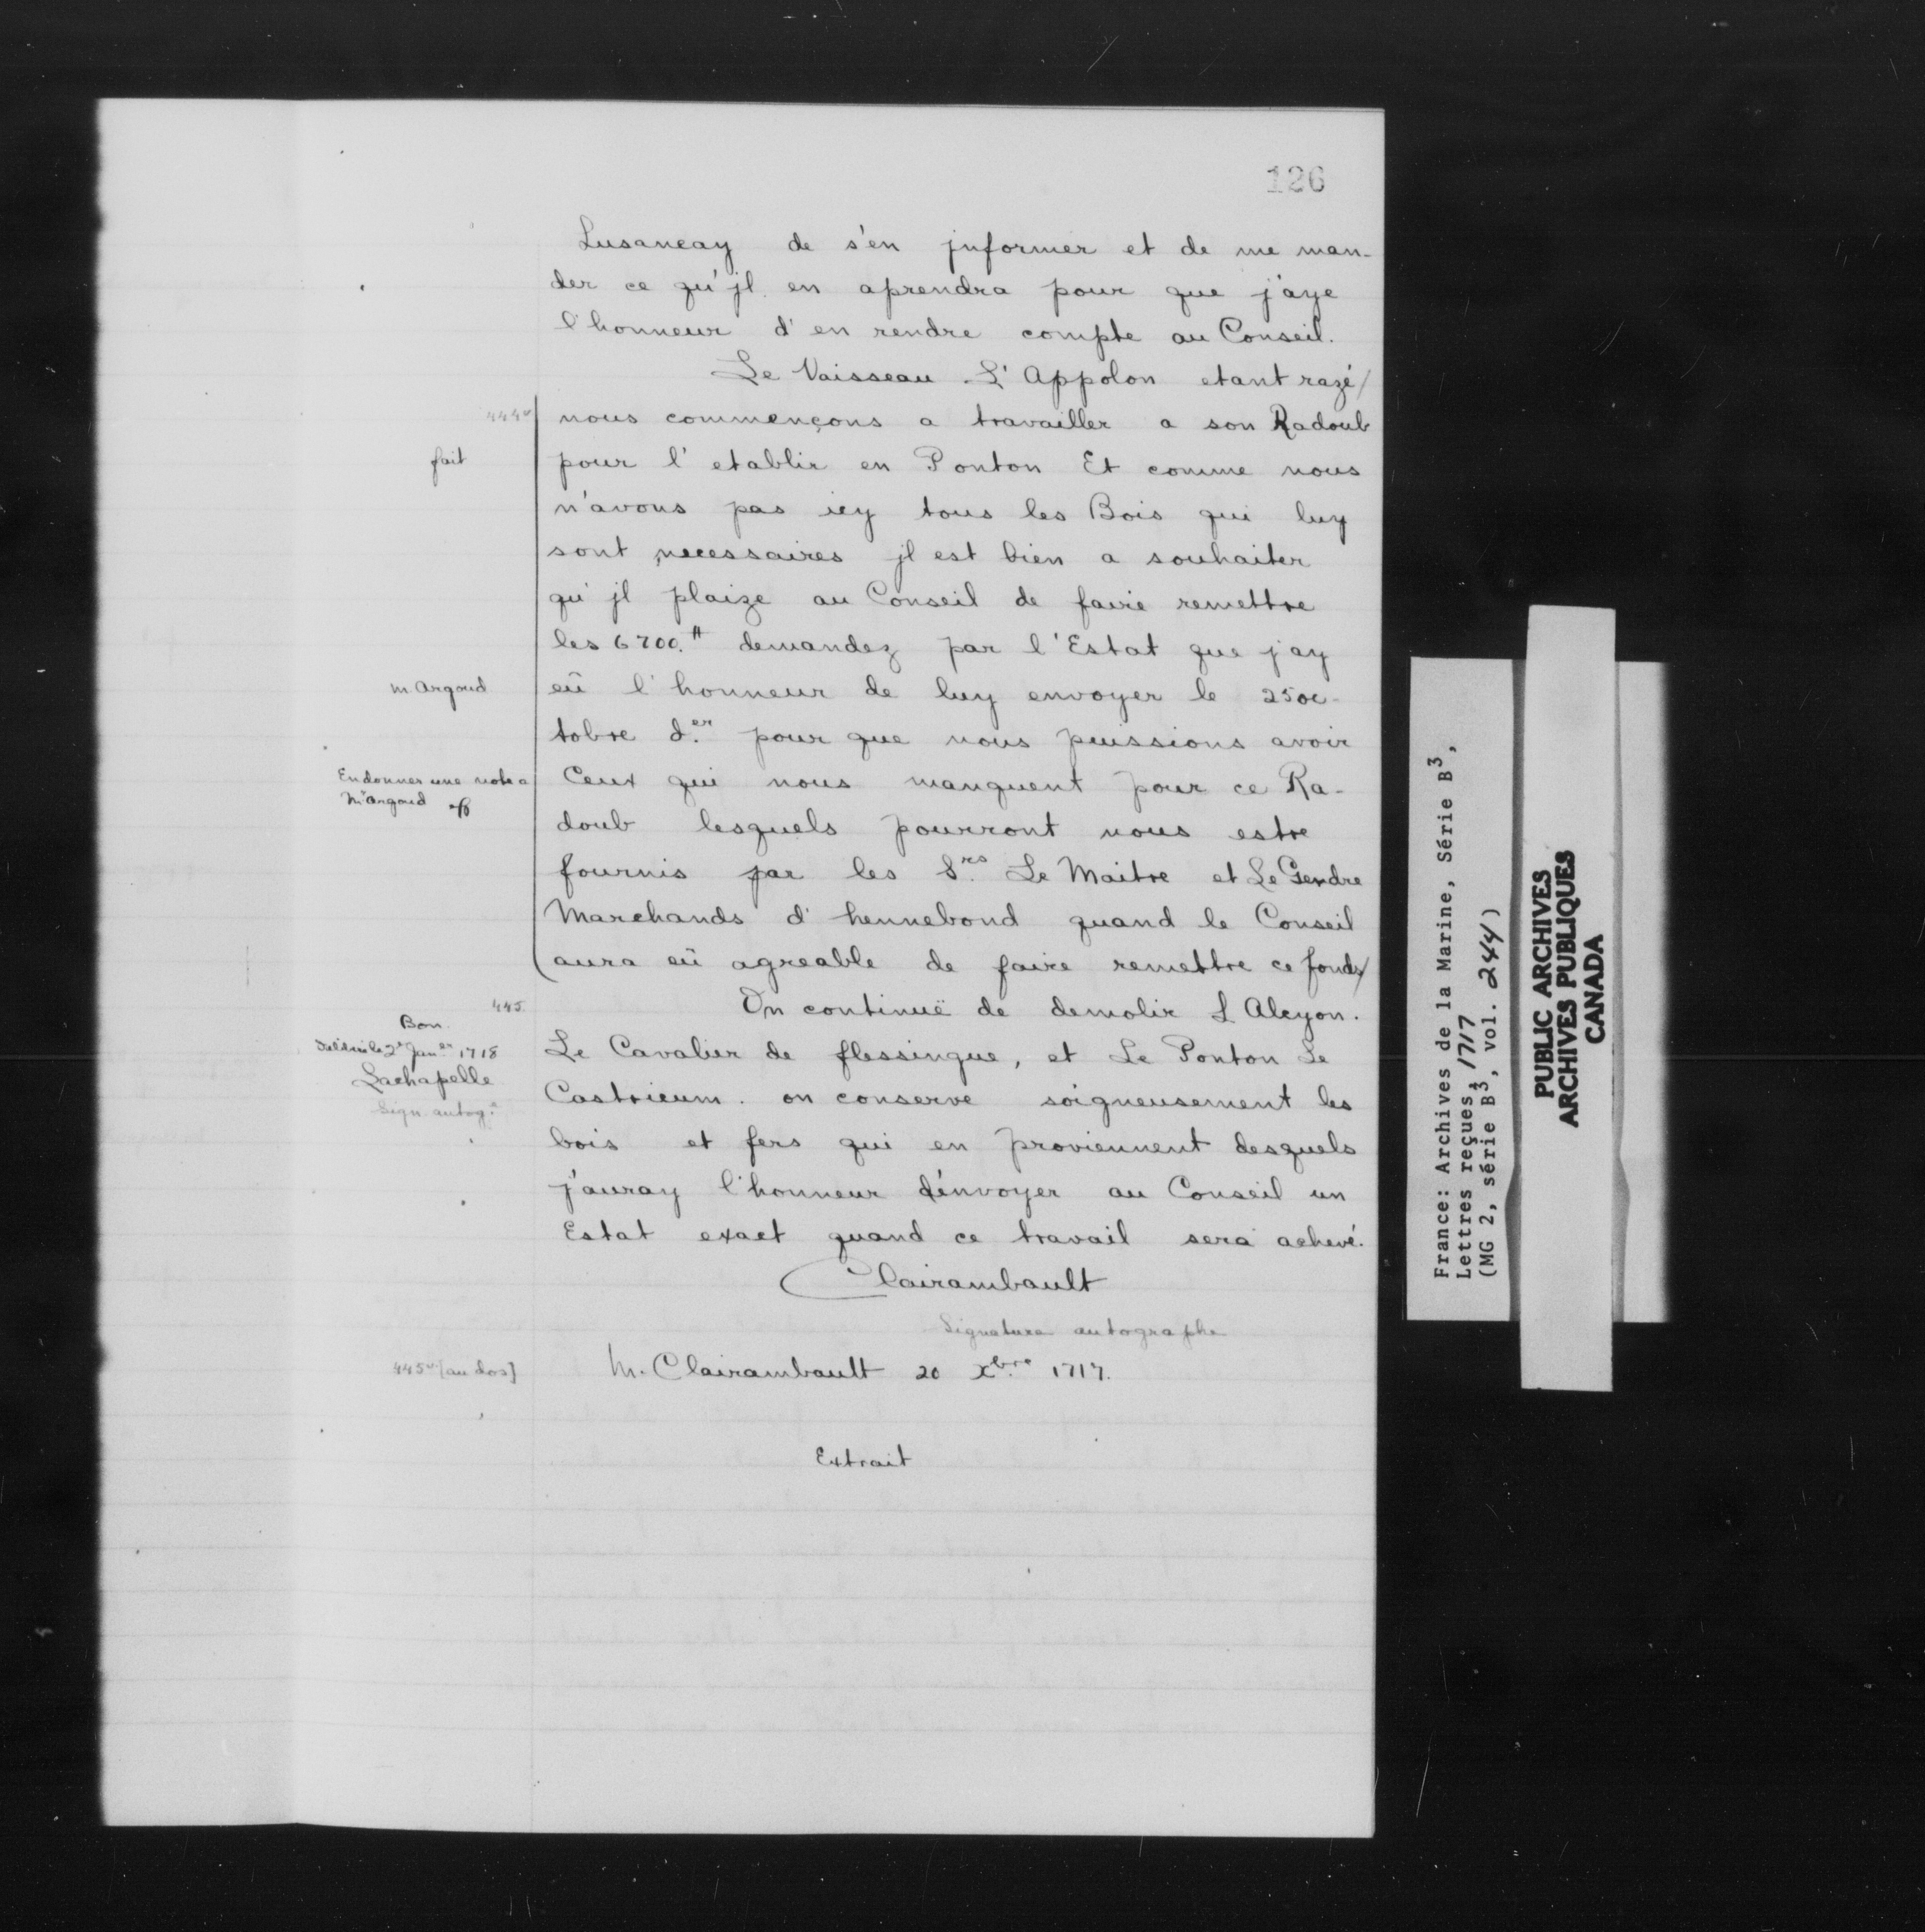 126
Lusancay de s'en jnformer et de me man-
der ce qu'jl en aprendra pour que j'aye
l'honneur d'en rendre compte au Conseil.
Le Vaisseau L'Appolon etant razé/
444v
nous commençons a travailler a son Radoub
fait
pour l'etablir en Ponton Et comme nous
n'avons pas icy tous les Bois qui luy
sont necessaires jl est bien a souhaiter
qu'jl plaize au Conseil de faire remettre
les 6700.₶ demandez par l'Estat que j'ay
m. Argoud
eü l'honneur de luy envoyer le 25 oc-
tobre d.er pour que nous puissions avoir
En donner une note a
Mr argoud
Ceux qui nous manquent pour ce Ra-
doub lesquels pourront nous estre
fournis par les S.rs Le Maitre et Le Gendre
Marchands d'hennebond quand le Conseil
aura eü agreable de faire remettre ce fonds/
445.
On continuë de demolir L Alcyon.
Bon
le 2e Jan.er 1718
Lachapelle
Sign. autog.e
Le Cavalier de flessingue, et Le Ponton Le
Castricum. on conserve soigneusement les
bois et fers qui en proviennent desquels
j'auray l'honneur d'envoyer au Conseil un
Estat exact quand ce travail sera achevé.
Clairambault
Signature autographe
445v. [au dos]
M. Clairambault 20 Xbre 1717.
Extrait
France: Archives de la Marine, Série B3,
Lettres reçues, 1717
(MG 2, série B3, vol. 244)
PUBLIC ARCHIVES
ARCHIVES PUBLIQUES
CANADA